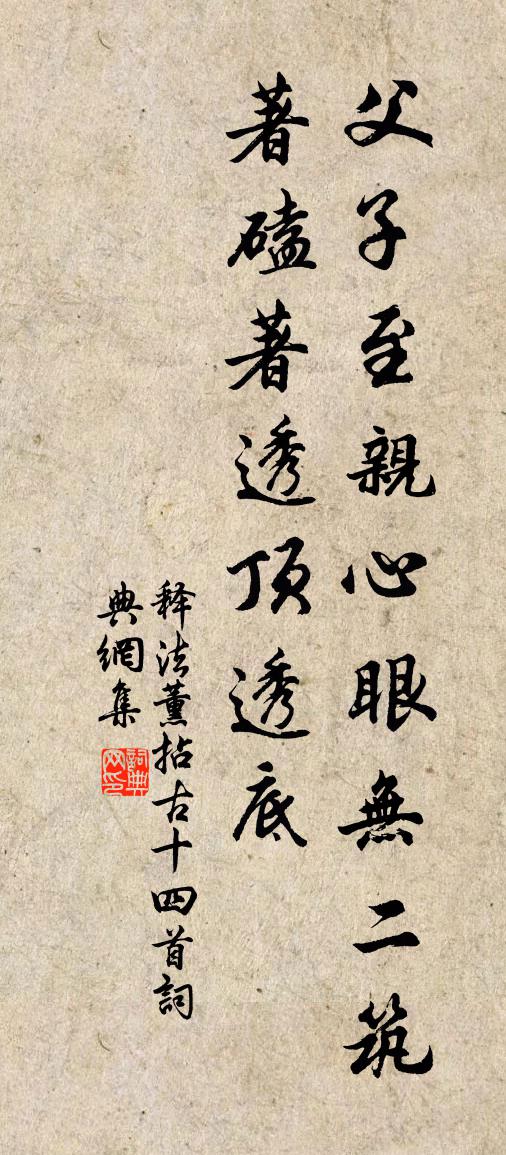 父子至親心眼無二筑
著磕著透頂透底
释法薰拈古十四首詞
典網集
詞典網印